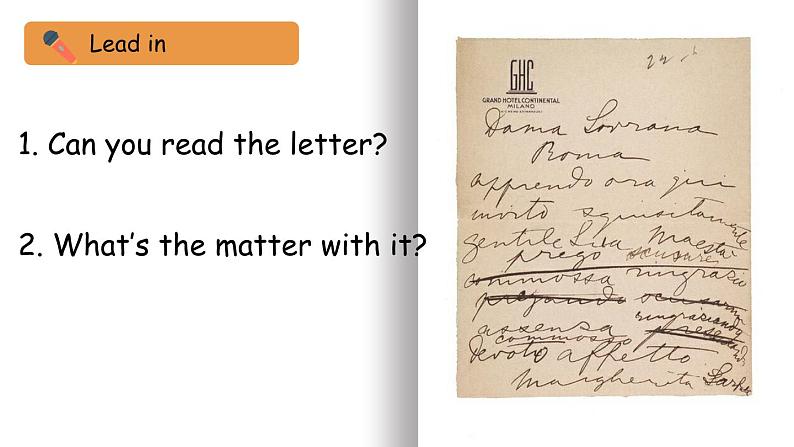 Lead in
1. Can you read the letter?
2. What's the matter with it?
GHC
GRAND HOTEL CONTINENTAL
MILANO
Dama Sovrana
Roma
apprendo ora qui
invito squisitamente
gentile Sua Maestà
prego scusare
commossa ringrazio
pregando scusarmi
ringraziando
assenza
commosso
devoto affetto
Margherita